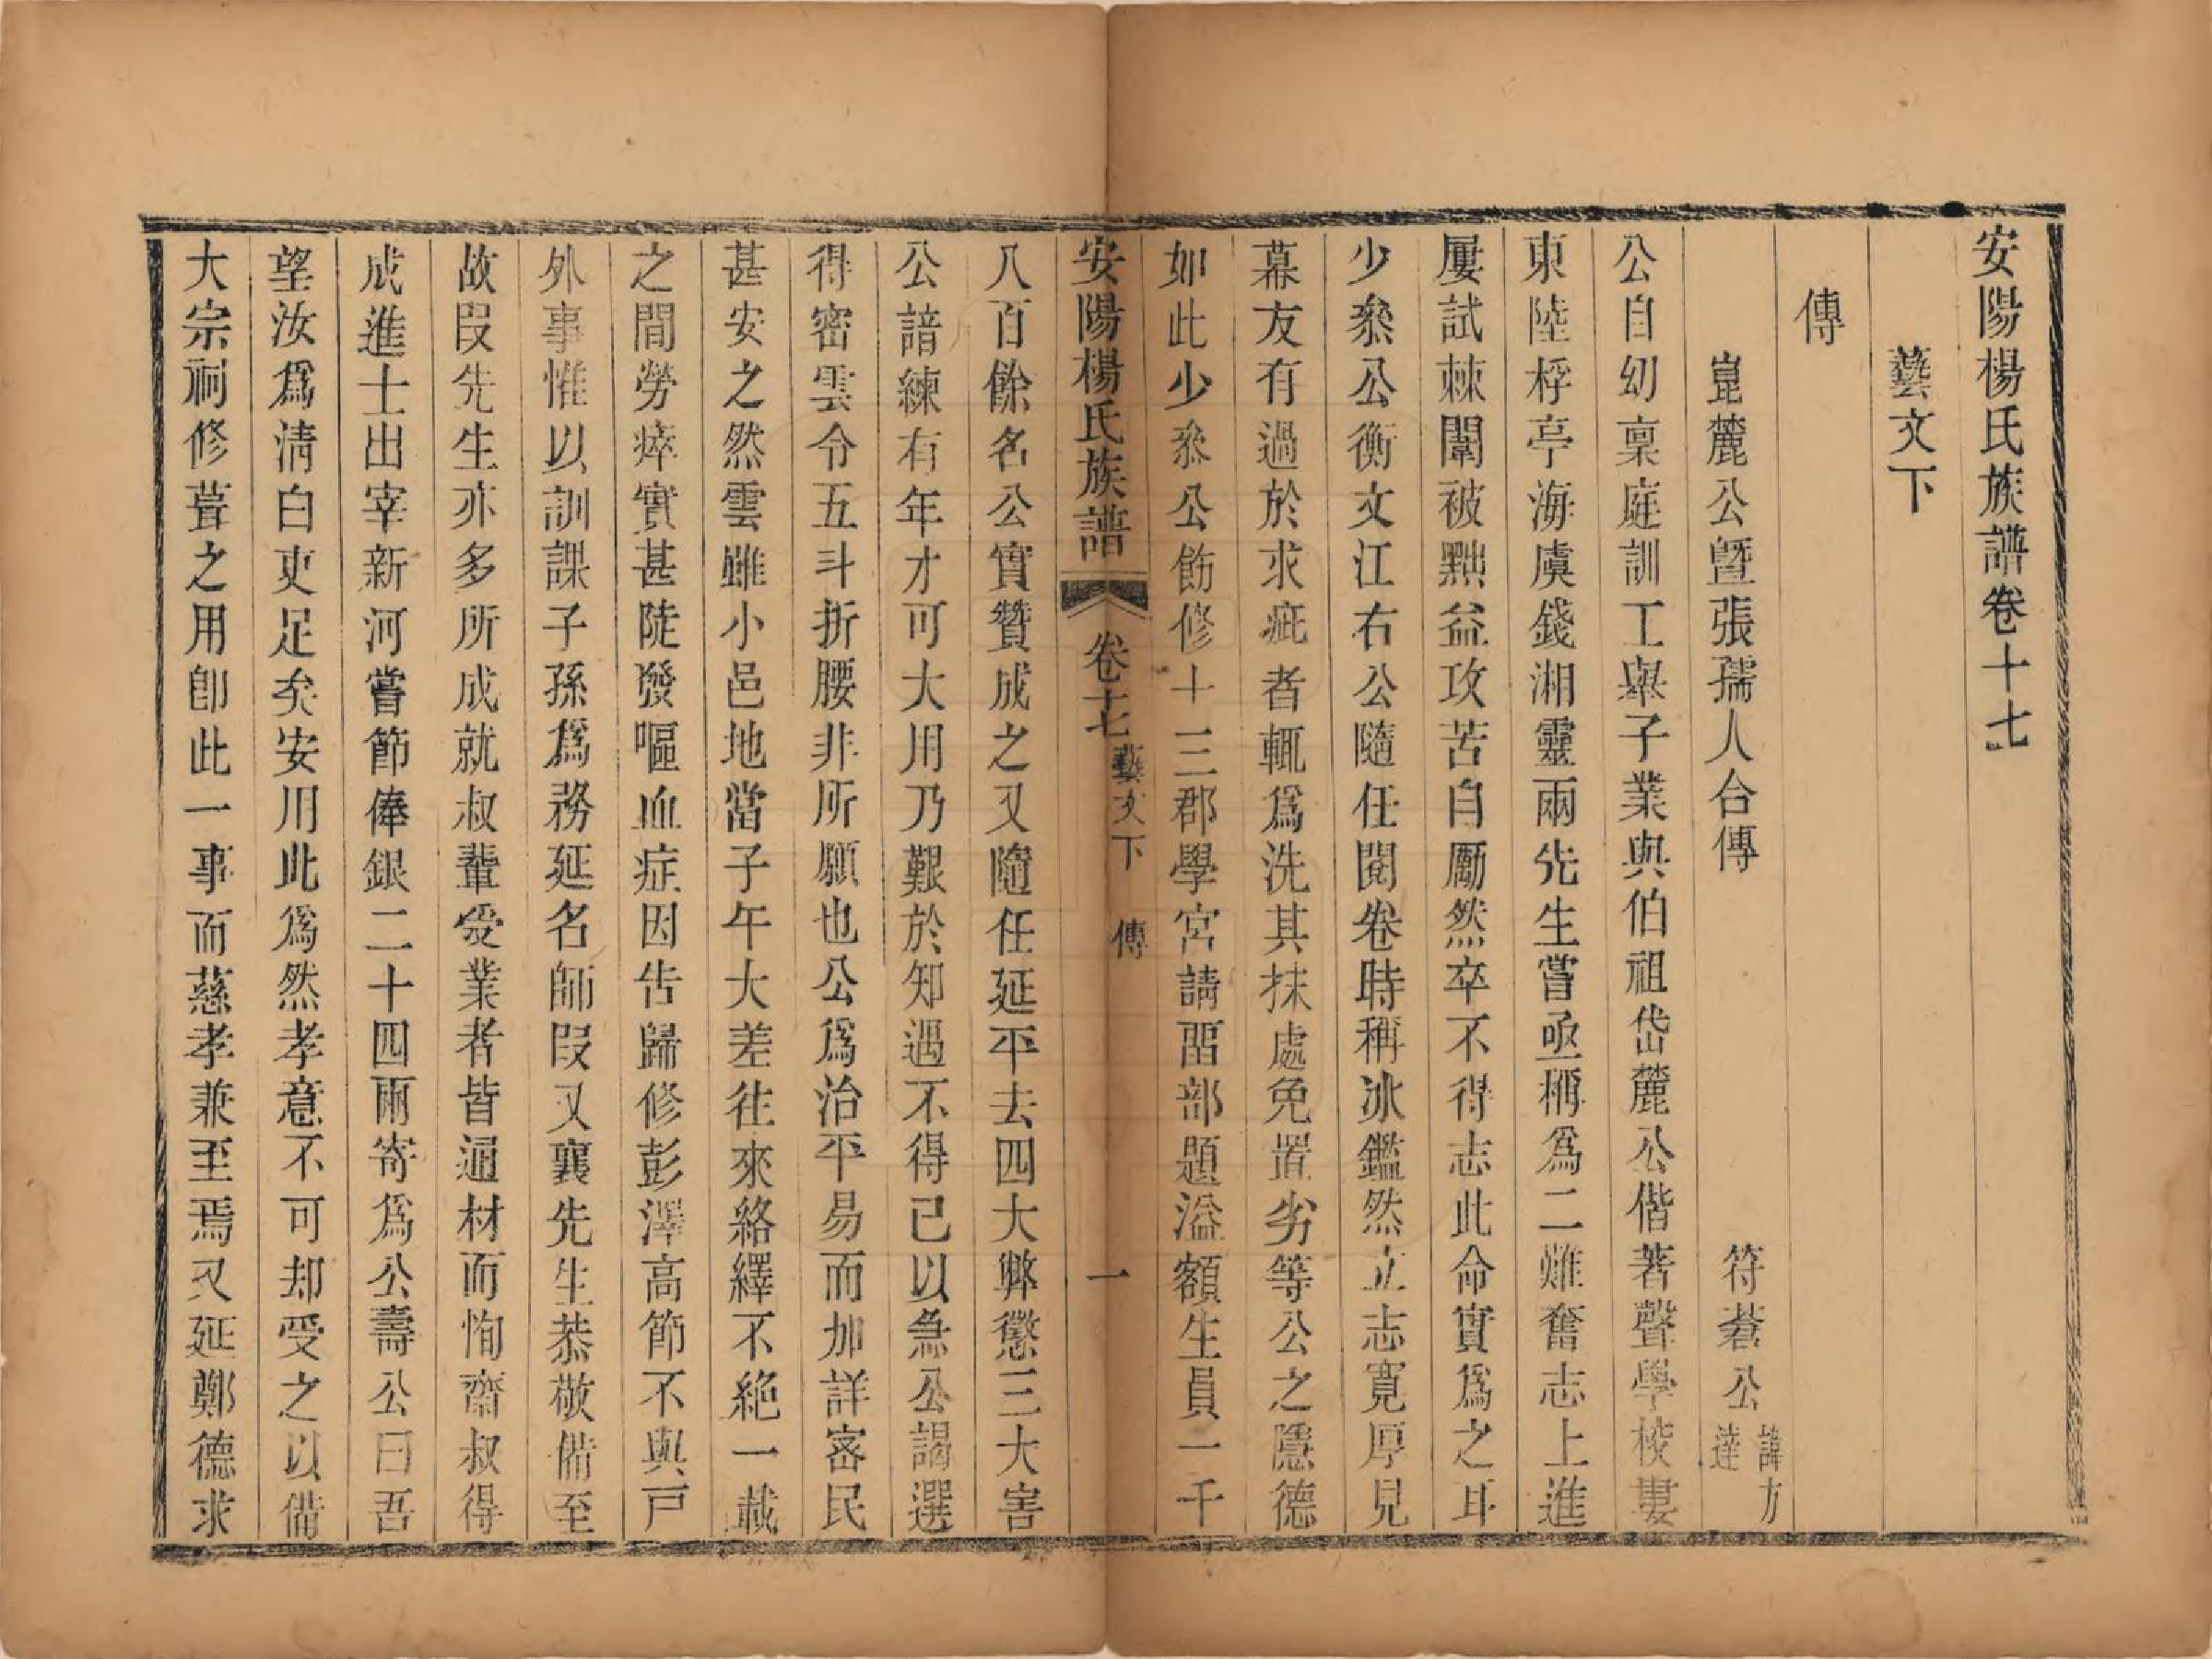 安陽楊氏族譜卷十七
藝文下
傳
崑麓公曁張孺人合傳 符蒼公諱方達
公自幼稟庭訓工舉子業與伯祖岱麓公偕著聲學校婁
東陸桴亭海虞錢湘靈兩先生嘗亟稱爲二難奮志上進
屢試棘闈被黜益攻苦自勵然卒不得志此命實爲之耳
少叅公衡文江右公隨任閱卷時稱冰鑑然立志寛厚見
幕友有過於求疵者輒爲洗其抹處免置劣等公之隱德
如此少叅公飭修十三郡學宮請留部題溢額生員一千
安陽楊氏族譜 卷十七 藝文下 傳 一
八百餘名公實贊成之又隨任延平去四大弊懲三大害
公諳練有年才可大用乃艱於知遇不得已以急公謁選
得密雲令五斗折腰非所願也公爲治平易而加詳審民
甚安之然雲雖小邑地當子午大差徃來絡繹不絶一載
之間勞瘁實甚陡發嘔血症因告歸修彭澤高節不與戸
外事惟以訓課子孫爲務延名師叚又襄先生恭敬備至
故叚先生亦多所成就叔輩受業者皆通材而恂齋叔得
成進士出宰新河嘗節俸銀二十四兩寄爲公壽公曰吾
望汝爲淸白吏足矣安用此爲然孝意不可却受之以備
大宗祠修葺之用卽此一事而慈孝兼至焉又延鄭德求